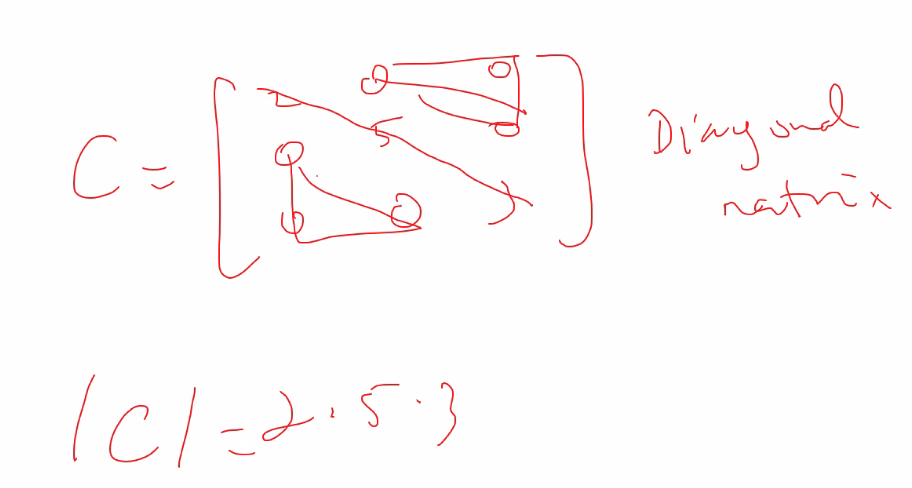 C = [ 2 0 0
0 5 0
0 0 3 ] Diagonal matrix
|C| = 2 · 5 · 3